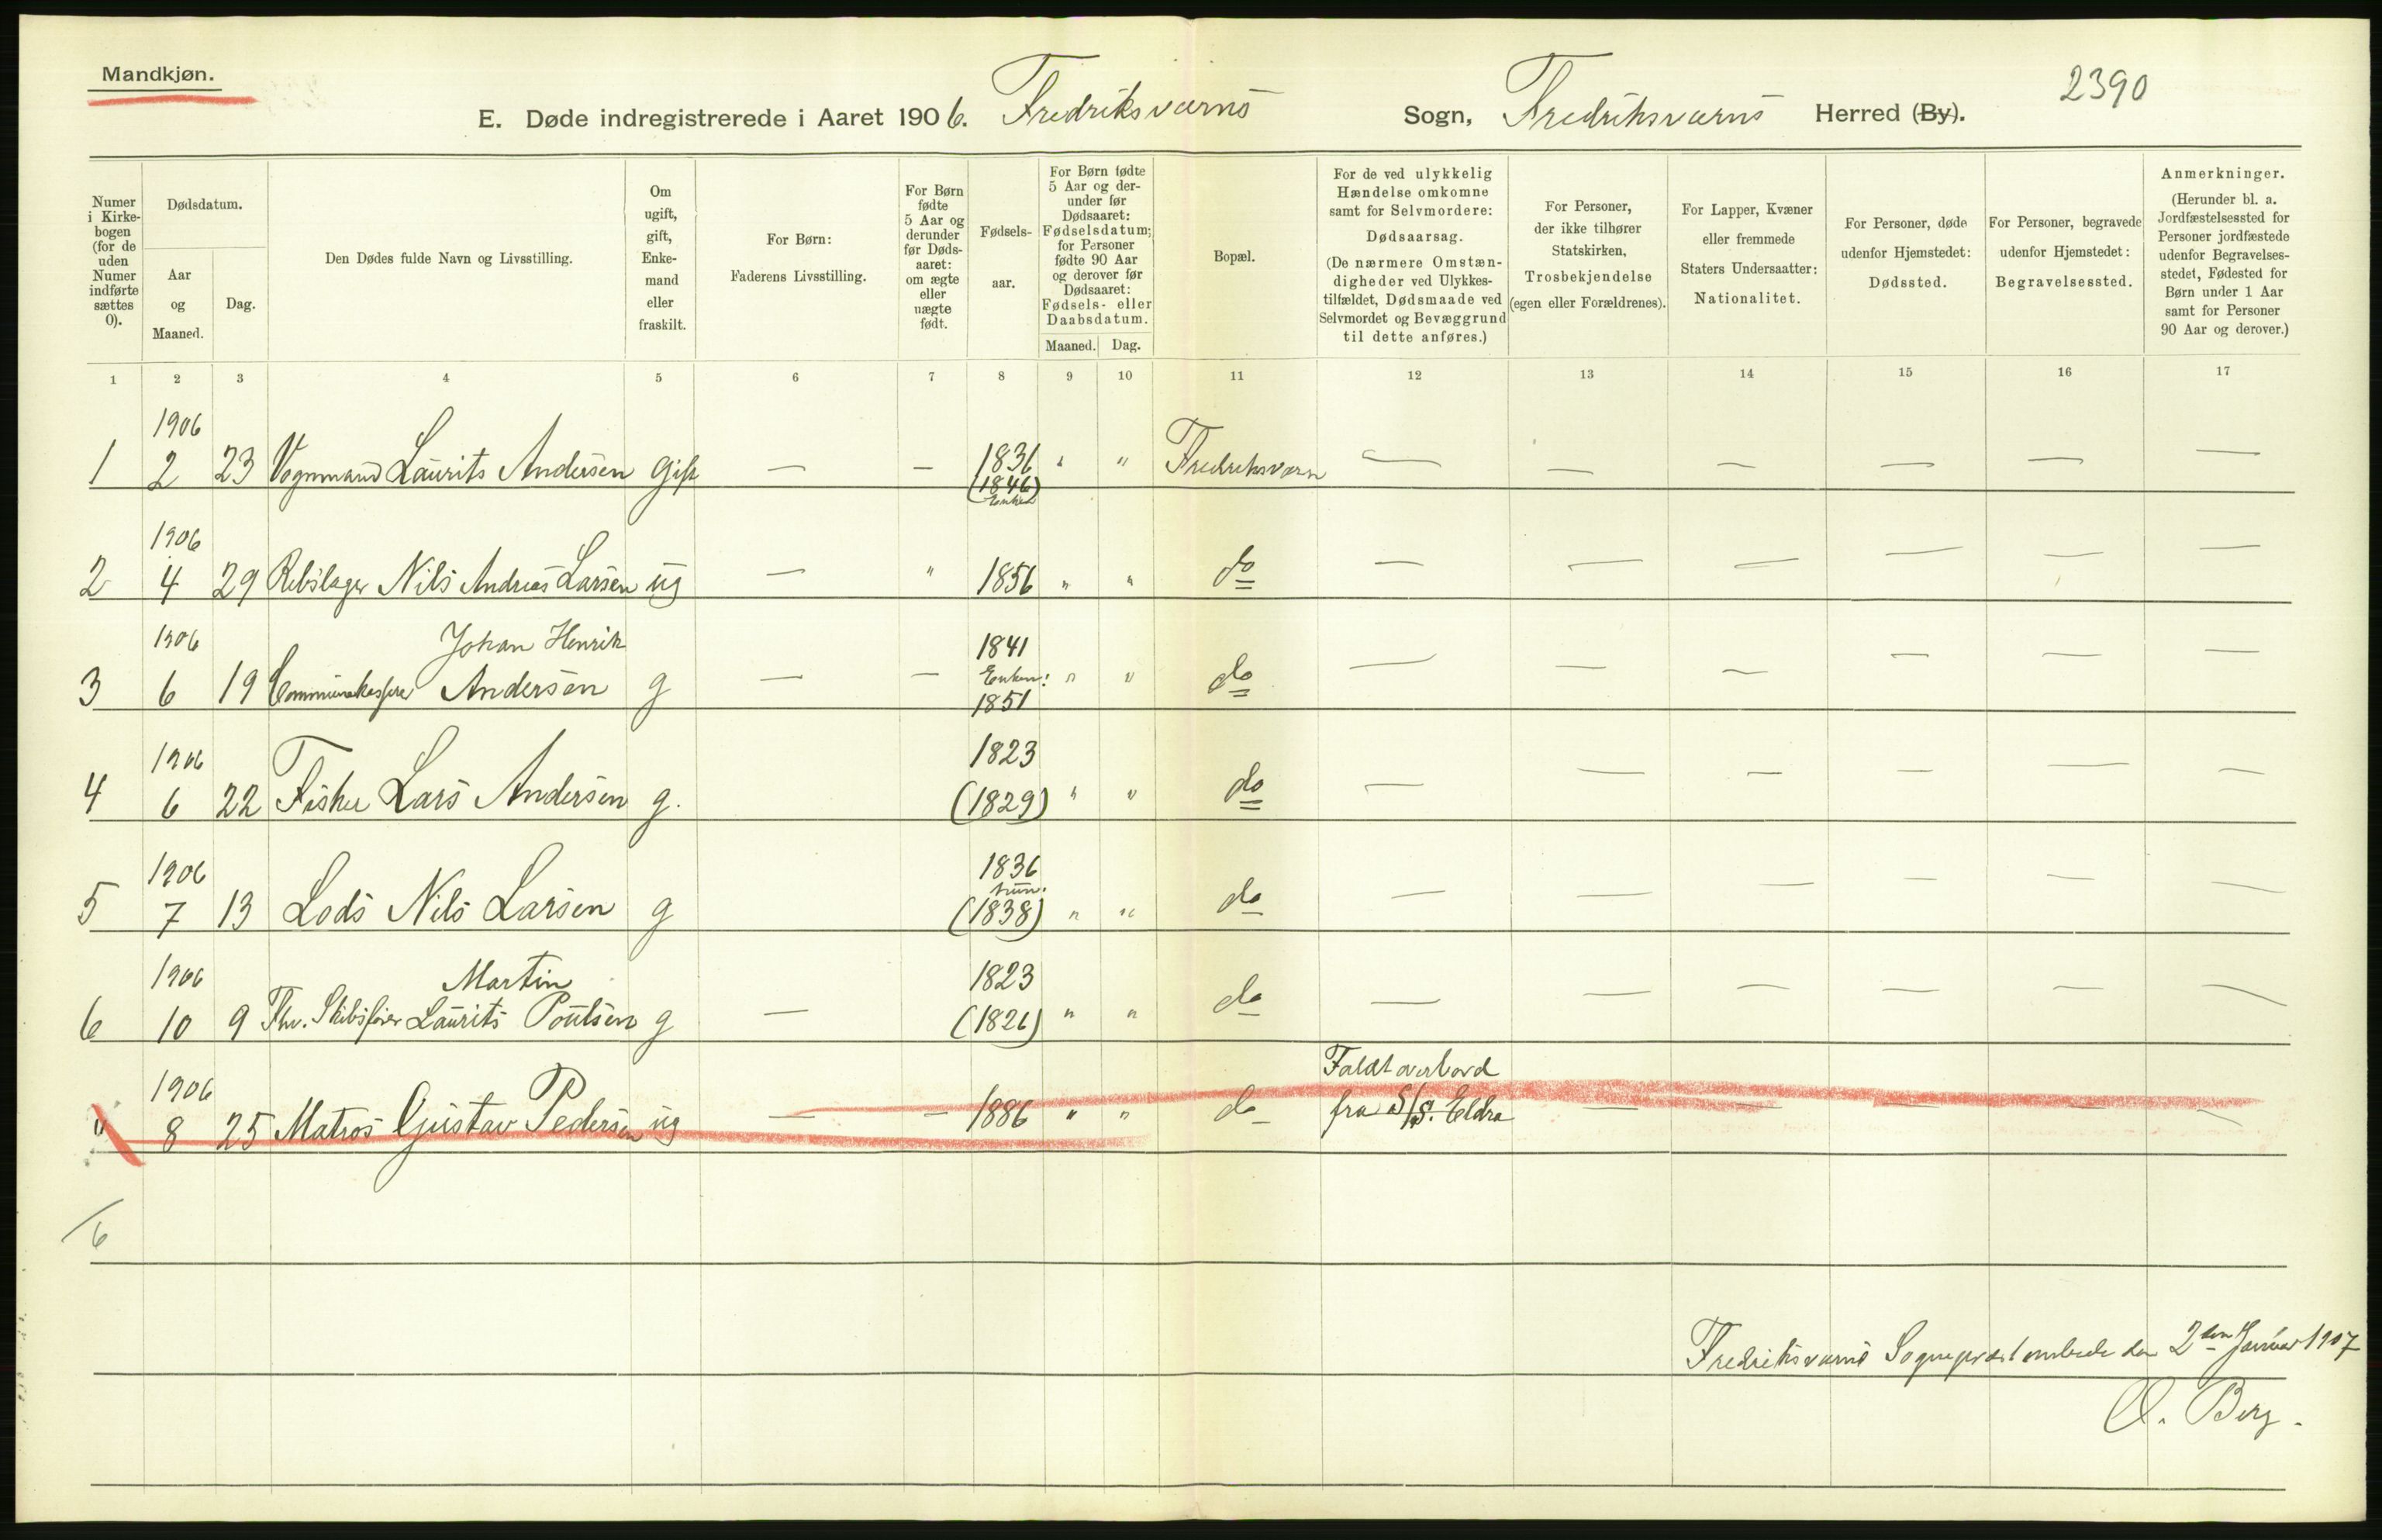 Mandkjøn.
2390
E. Døde indregistrerede i Aaret 1906. Fredriksværns Sogn, Fredriksværns Herred (By).
Numer i Kirkebogen (for de uden Numer indførte sættes 0).
Dødsdatum.
Aar og Maaned.
Dag.
Den Dødes fulde Navn og Livsstilling.
Om ugift, gift, Enkemand eller fraskilt.
For Børn: Faderens Livsstilling.
For Børn fødte 5 Aar og derunder før Dødsaaret: om ægte eller uægte født.
Fødselsaar.
For Børn fødte 5 Aar og derunder før Dødsaaret: Fødselsdatum; for Personer fødte 90 Aar og derover før Dødsaaret: Fødsels- eller Daabsdatum.
Maaned. Dag.
Bopæl.
For de ved ulykkelig Hændelse omkomne samt for Selvmordere: Dødsaarsag. (De nærmere Omstændigheder ved Ulykkestilfældet, Dødsmaade ved Selvmordet og Bevæggrund til dette anføres.)
For Personer, der ikke tilhører Statskirken, Trosbekjendelse (egen eller Forældrenes).
For Lapper, Kvæner eller fremmede Staters Undersaatter: Nationalitet.
For Personer, døde udenfor Hjemstedet: Dødssted.
For Personer, begravede udenfor Hjemstedet: Begravelsessted.
Anmerkninger. (Herunder bl. a. Jordfæstelsessted for Personer jordfæstede udenfor Begravelsesstedet, Fødested for Børn under 1 Aar samt for Personer 90 Aar og derover.)
1 2 3 4 5 6 7 8 9 10 11 12 13 14 15 16 17
1906
1 2 23 Vognmand Laurits Andersen gift — — 1831 " " Fredriksværn — — — — — —
(1846)
Enken
1906
2 4 29 Rebslager Nils Andreas Larsen ug — " 1856 " " do — — — — — —
1906 Johan Henrik 1841
3 6 19 Communekasserer Andersen g — — Enken: " " do — — — — — —
1851
1906 1823
4 6 22 Fisker Lars Andersen g. (1829) " " do — — — — — —
1906 1836
5 7 13 Lods Nils Larsen g (1838) " " do — — — — — —
1906 Martin 1823
6 10 9 Fhv. Skibsfører Laurits Poulsen g — (1826) " " do — — — — — —
1906 Faldt overbord
" 8 25 Matros Gustav Pedersen ug — — 1886 " " do fra S/S. Eldra — — — — —
6
Fredriksværns Sogneprestembede den 2den Januar 1907
O. Berg.